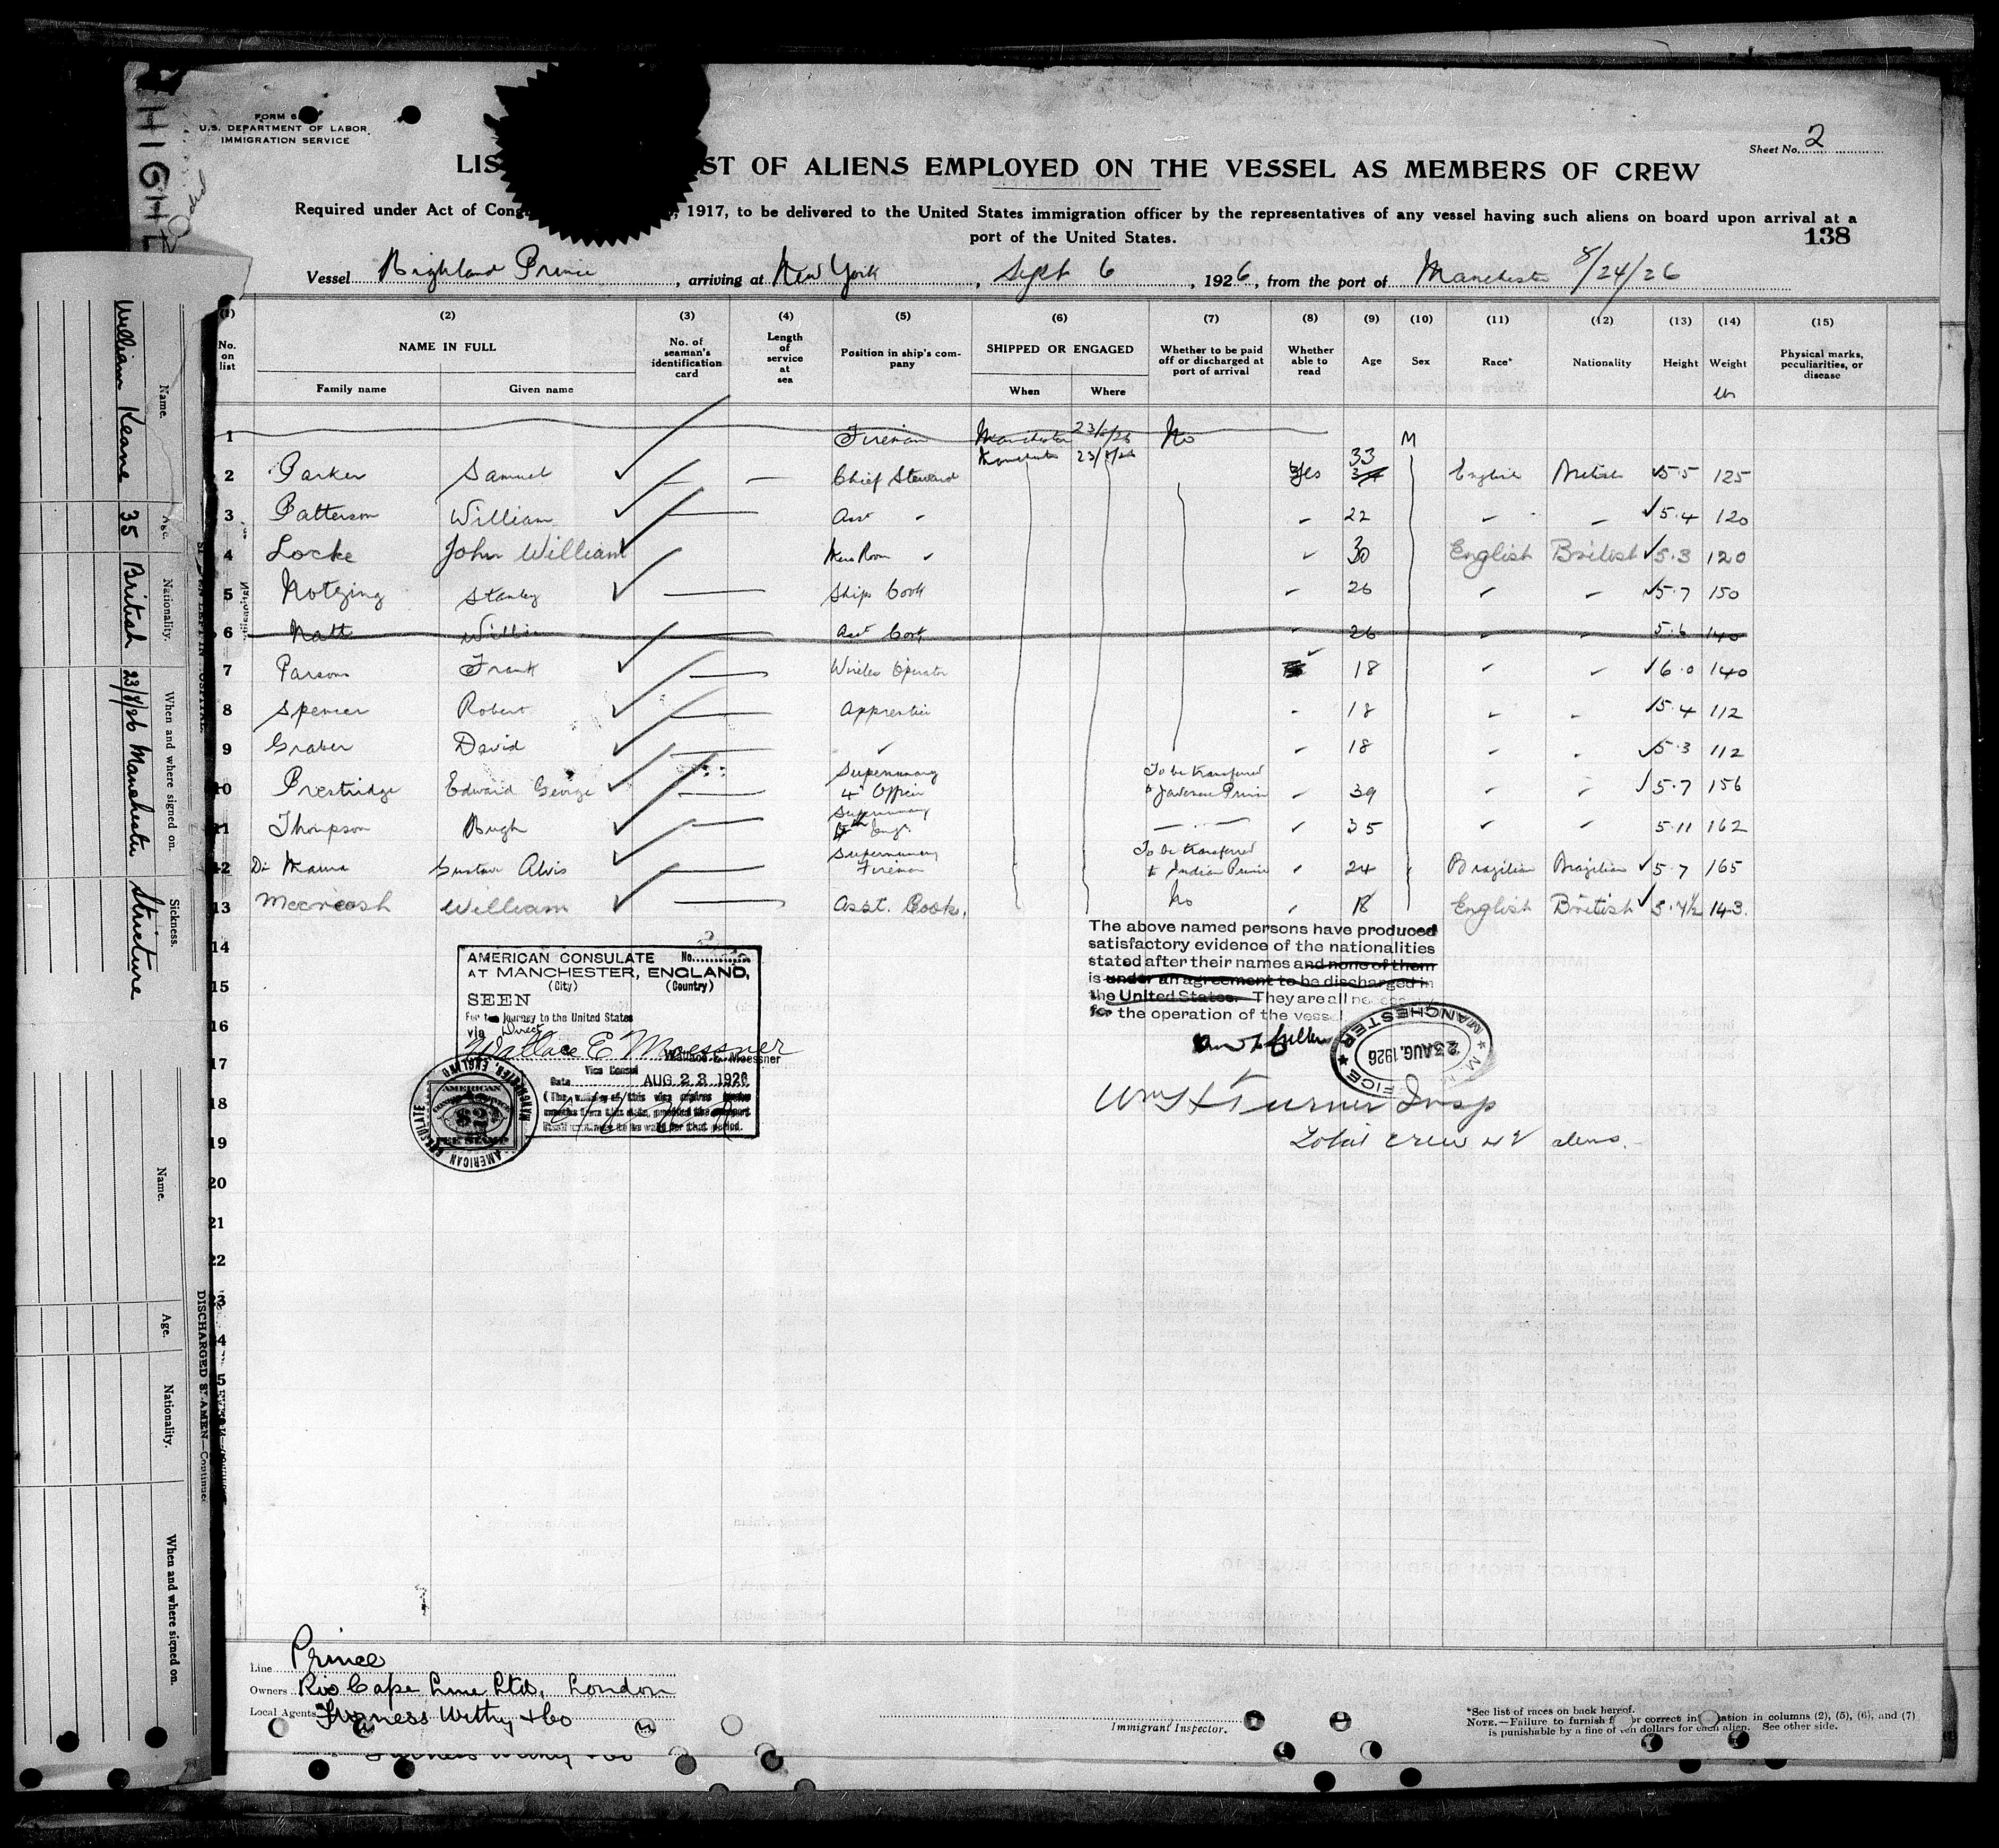 FORM 6
U.S. DEPARTMENT OF LABOR
IMMIGRATION SERVICE
Sheet No. 2
LIS ST OF ALIENS EMPLOYED ON THE VESSEL AS MEMBERS OF CREW
Required under Act of Cong , 1917, to be delivered to the United States immigration officer by the representatives of any vessel having such aliens on board upon arrival at a
port of the United States.
138
Vessel Highland Prince, arriving at New York, Sept 6, 1926, from the port of Manchester 8/24/26
(1) (2) (3) (4) (5) (6) (7) (8) (9) (10) (11) (12) (13) (14) (15)
No. on list NAME IN FULL No. of seaman's identification card Length of service at sea Position in ship's company SHIPPED OR ENGAGED Whether to be paid off or discharged at port of arrival Whether able to read Age Sex Race* Nationality Height Weight Physical marks, peculiarities, or disease
Family name Given name When Where
1 Fireman Manchester 23/8/26 No M
2 Parker Samuel — — Chief Steward Manchester 23/8/26 Yes 33 English British 5.5 125
3 Patterson William Asst 22 5.4 120
4 Locke John William 30 English British 5.3 120
5 Stanley Ships Cook 26 5.7 150
6 Natt Asst Cook 26 5.6 140
7 Parsons Frank Wireless Operator 18 6.0 140
8 Spencer Robert Apprentice 18 5.4 112
9 Graber David 18 5.3 112
10 Prestridge Edward George Supernumary 4th Officer To be transferred to Javanese Prince 39 5.7 156
11 Thompson Hugh Supernumary Engr 35 5.11 162
12 Gustave Alvis Supernumary Fireman To be transferred to Indian Prince 24 Brazilian Brazilian 5.7 165
13 William Asst. Cook. No 18 English British 143.
14
15
16
17
18
19
20
21
22
23
The above named persons have produced
satisfactory evidence of the nationalities
stated after their names and none of them
is under an agreement to be discharged in
the United States. They are all necessary
for the operation of the vessel
MANCHESTER
23 AUG. 1926
Wm H Turner Insp
Total crew aliens.
AMERICAN CONSULATE No.
AT MANCHESTER, ENGLAND,
(City) (Country)
SEEN
For the journey to the United States
via Direct
Wallace E Moessner
Wallace E. Moessner
Vice Consul
Date AUG 23 1926
(The validity of this visa expires twelve
months from this date, provided the passport
continues to be valid for that period.
AMERICAN CONSULATE MANCHESTER, ENGLAND
AMERICAN
$2
FEE STAMP
Line Prince
Owners Rio Cape Line Ltd, London
Local Agents Furness Withy & Co
Immigrant Inspector.
*See list of races on back hereof.
NOTE.—Failure to furnish f or correct in ation in columns (2), (5), (6), and (7)
is punishable by a fine of ten dollars for each alien. See other side.
HIGHL
Name. Age. Nationality. When and where signed on. Sickness.
William Keane 35 British 23/8/26 Manchester Stricture
DISCHARGED SEAMEN—Continued
Name. Age. Nationality. When and where signed on.